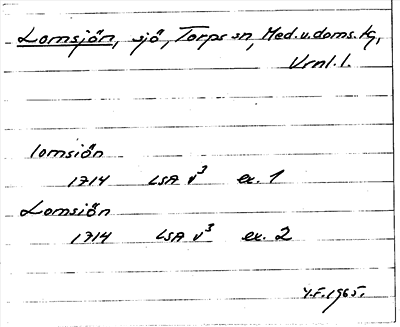 Lomsjön, sjö, Torps sn, Med.v.doms.tg,
Vrnl.l.
lomsiön
1714 LSA v³ ex. 1
Lomsiön
1714 LSA v³ ex. 2
Y.F. 1965.